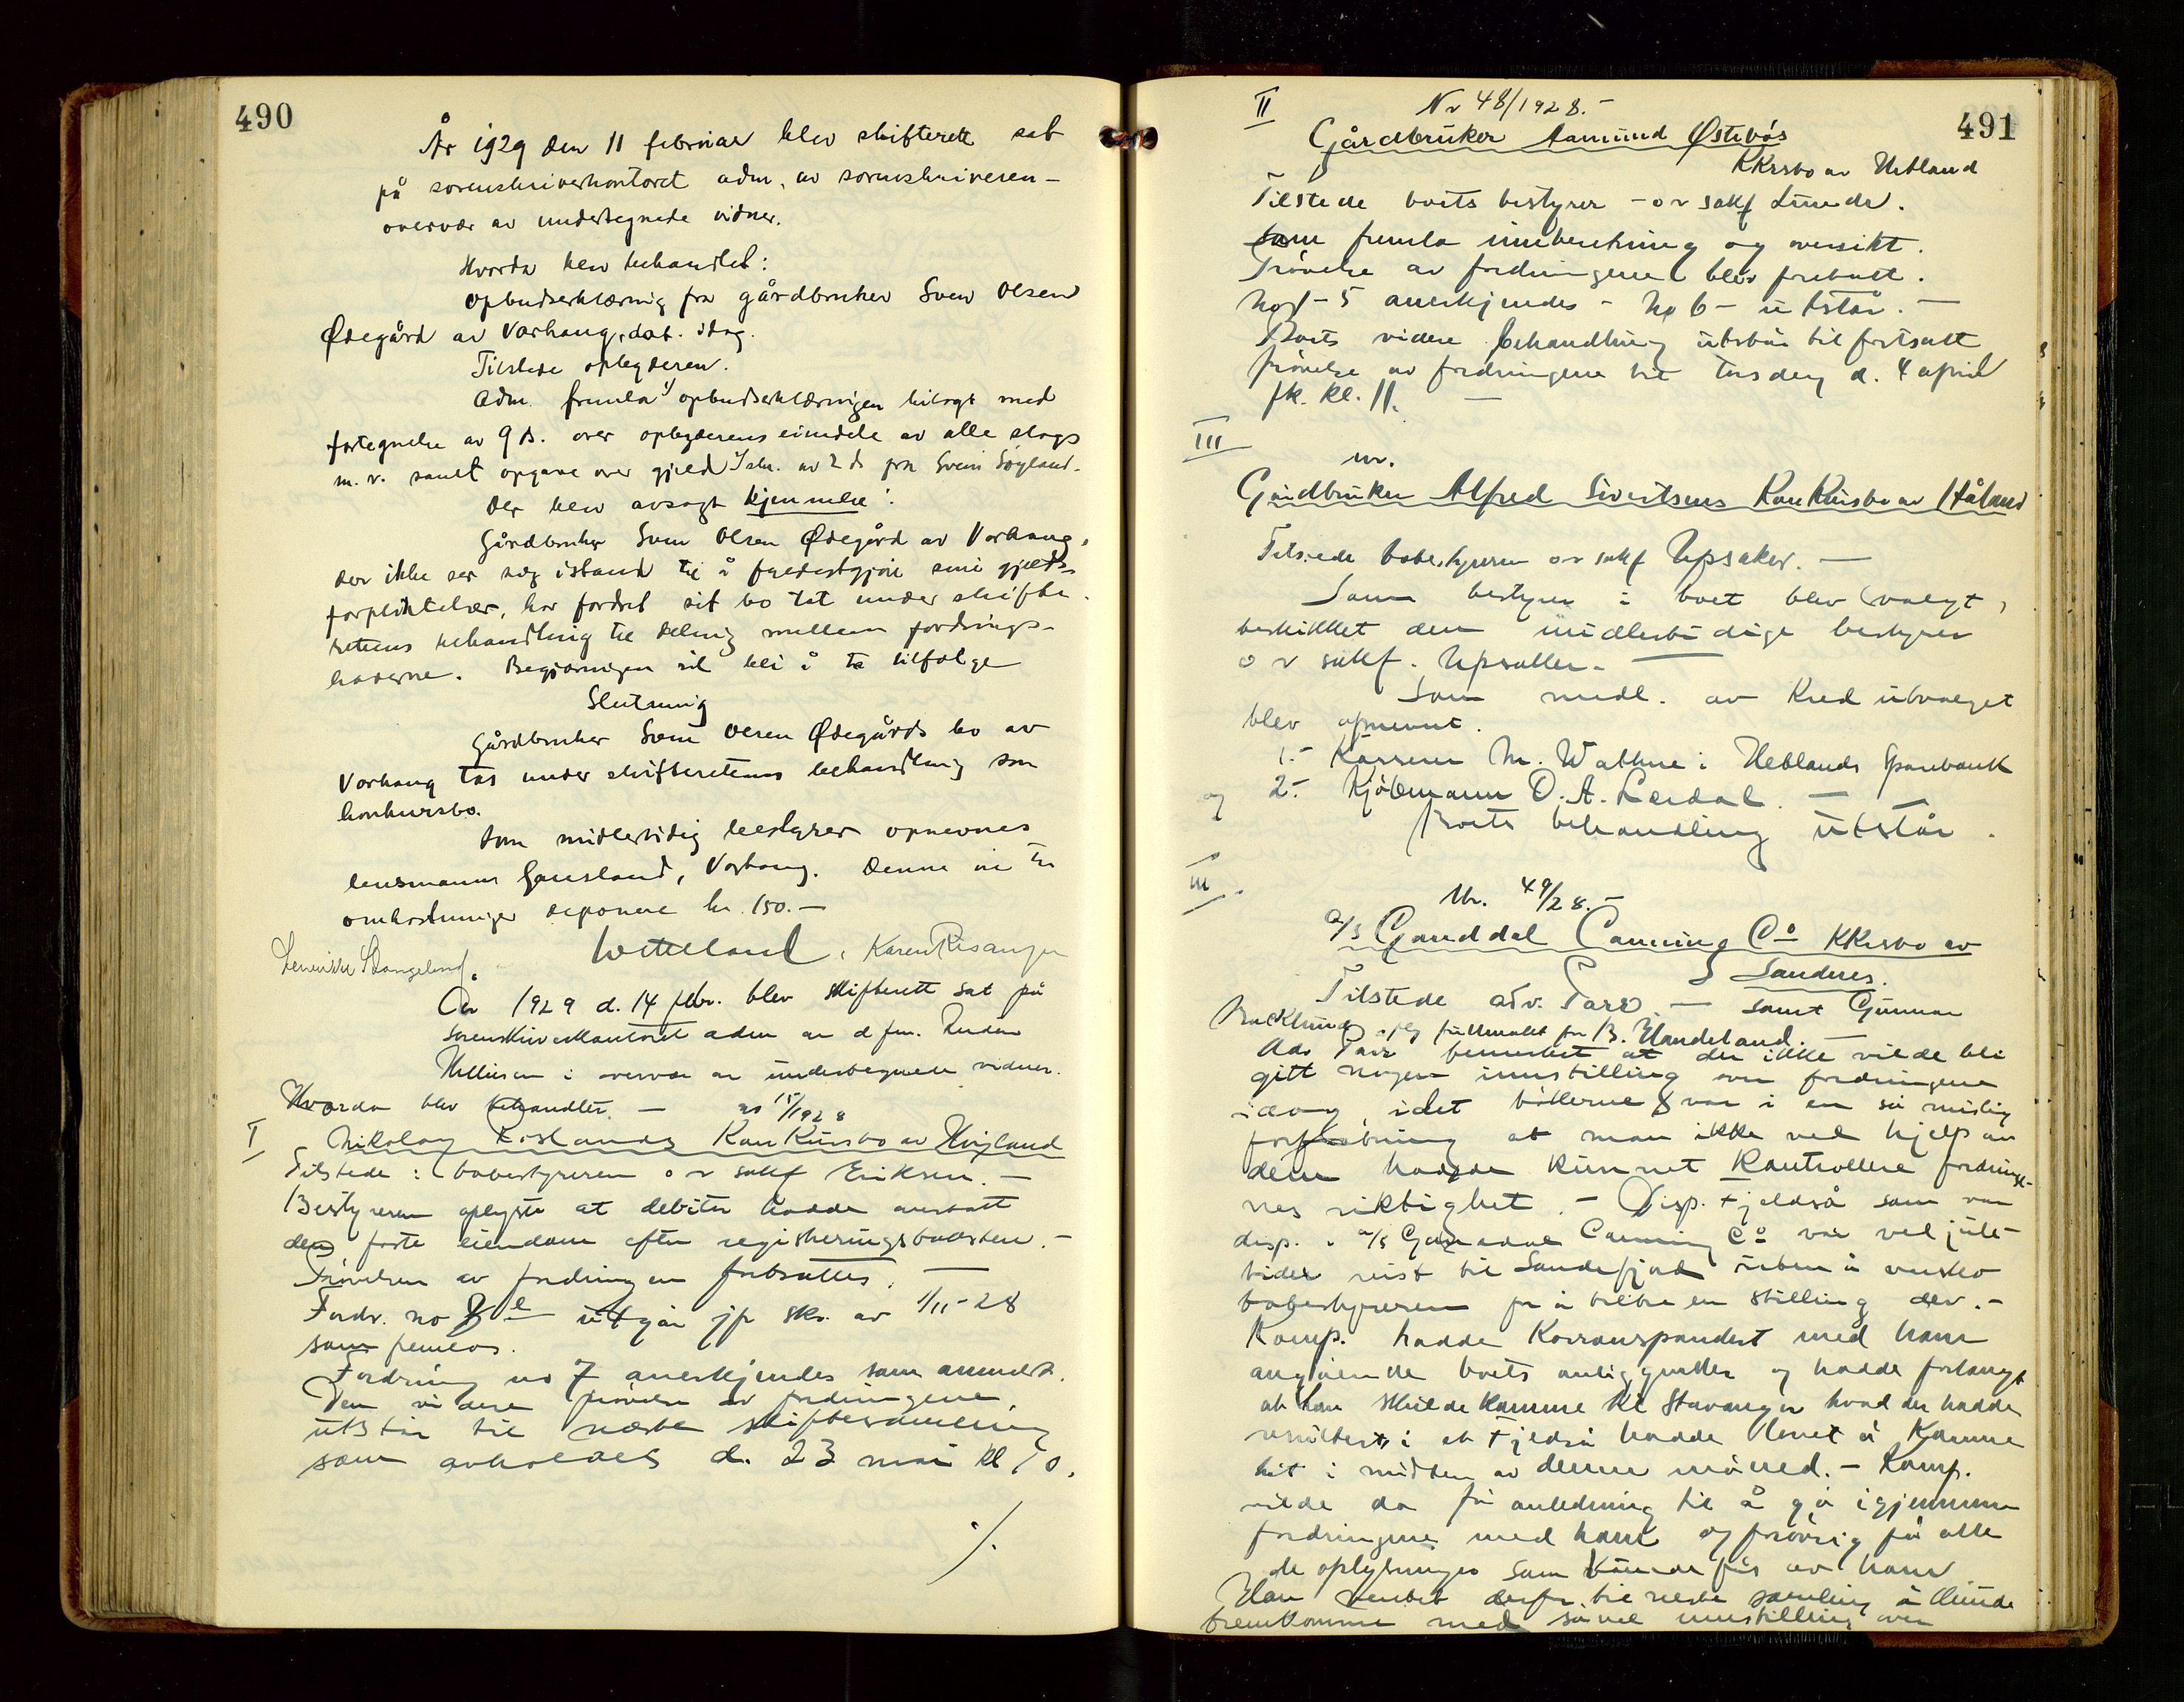 490
År 1929 den 11 februar blev skifterett sat
på sorenskriverkontoret adm. av sorenskriveren -
overvær av undertegnede vidner.
Hvorda blev behandlet:
Opbudserklæring fra gårdbruker Sven Olsen
Ødegård av Varhaug, dat. idag.
Tilstede opbyderen.
Adm. fremla 1) opbudserklæringen bilagt med
fortegnelse av 9 ds. over opbyderens eiendele av alle slags
m.v. samt opgave over gjeld skr. av 2 ds fra Svein Søyland.
Der blev avsagt kjennelse:
Gårdbruker Sven Olsen Ødegård av Varhaug,
der ikke ser sig istand til å fyldestgjøre sine gjelds-
forpliktelser, har fordret sit bo tat under skifte-
rettens behandling til deling mellem fordrings-
haverne. Begjæringen vil bli å ta tilfølge
Slutning
Gårdbruker Sven Olsen Ødegårds bo av
Varhaug tas under skifterettens behandling som
konkursbo.
Som midlertidig bestyrer opnevnes
lensmann Gausland, Varhaug. Denne vil til
omkostninger deponere kr. 150.-
Wetteland, Karen Risanger
Stangeland.
År 1929 d. 14 febr. blev skifterett sat på
sorenskriverkontoret adm av d fm.
i overvær av undertegnede vidner.
Hvorda blev behandlet. -
no 15/1928
I
Nikolay Roslands Konkursbo av Høyland
Tilstede: bobestyreren o r sakf Eriksen. -
Bestyreren oplyste at debitor hadde avertatt
den faste eiendom efter registreringstaksten. -
Prøvelsen av fordringen fortsattes. -
Fordr. no 8 utgår jfr skr. av 1/11-28
som fremlas.
Fordring no 7 anerkjendes som anmeldt.
Den videre prøvelse av fordringene
utstår til næste skiftesamling
som avholdes d. 23 mai kl 10.
./.
491
II
Nr 48/1928.-
Gårdbruker Aamund Østebøs
KKrsbo av Hetland
Tilstede boets bestyrer - o r sakf Lunde.
som fremla innberetning og oversikt.
Prøvelse av fordringene blev foretatt.
No 1-5 anerkjendes - No 6 - utstår. -
Boets videre behandling utstår til fortsatt
prøvelse av fordringene til torsdag d. 4 april
fk. kl. 11. -
III
nr.
Gårdbruker Alfred Sivertsens Konkursbo av Håland
Tilstede bobestyreren o r sakf Upsaker. -
Som bestyrer i boet blev valgt,
beskikket den midlertidige bestyrer
o r sakf. Upsaker. -
Som medl. av Kredutvalget
blev opnevnt.
1.- Kasserer M. Wathne i Hetlands Sparebank
og 2.- Kjøbmann O. A. Lerdal. -
Boets behandling utstår.
Nr. 49/28.-
A/S Ganddal Canning Co KKrsbo av
Sandnes.
Tilstede adv. Tarr - samt Gunnar
Backlund iflg fullmakt for B. Haadeland. -
Adv Tarr bemerket at der ikke vilde bli
gitt nogen innstilling over fordringene
idag, idet bøkerne var i en så mislig
forfatning at man ikke ved hjelp av
dem hadde kunnet kontrollere fordringe-
nes riktighet. - Disp. Fjeldså som var
disp. i A/S Ganddal Canning Co var ved jule-
tider reist til Sandefjord uten å varsko
bobestyreren for å tiltre en stilling der. -
Komp. hadde korrespondert med ham
angående boets anliggender og hadde forlangt
at han skulde komme til Stavanger hvad der hadde
resultert i at Fjeldså hadde lovet å komme
hit i midten av denne måned. - Komp.
vilde da få anledning til å gå igjennem
fordringene med ham og forøvrig få alle
de oplysninger som kunde fås av ham
Han ventet derfor til neste samling å kunde
fremkomme med såvel innstilling over